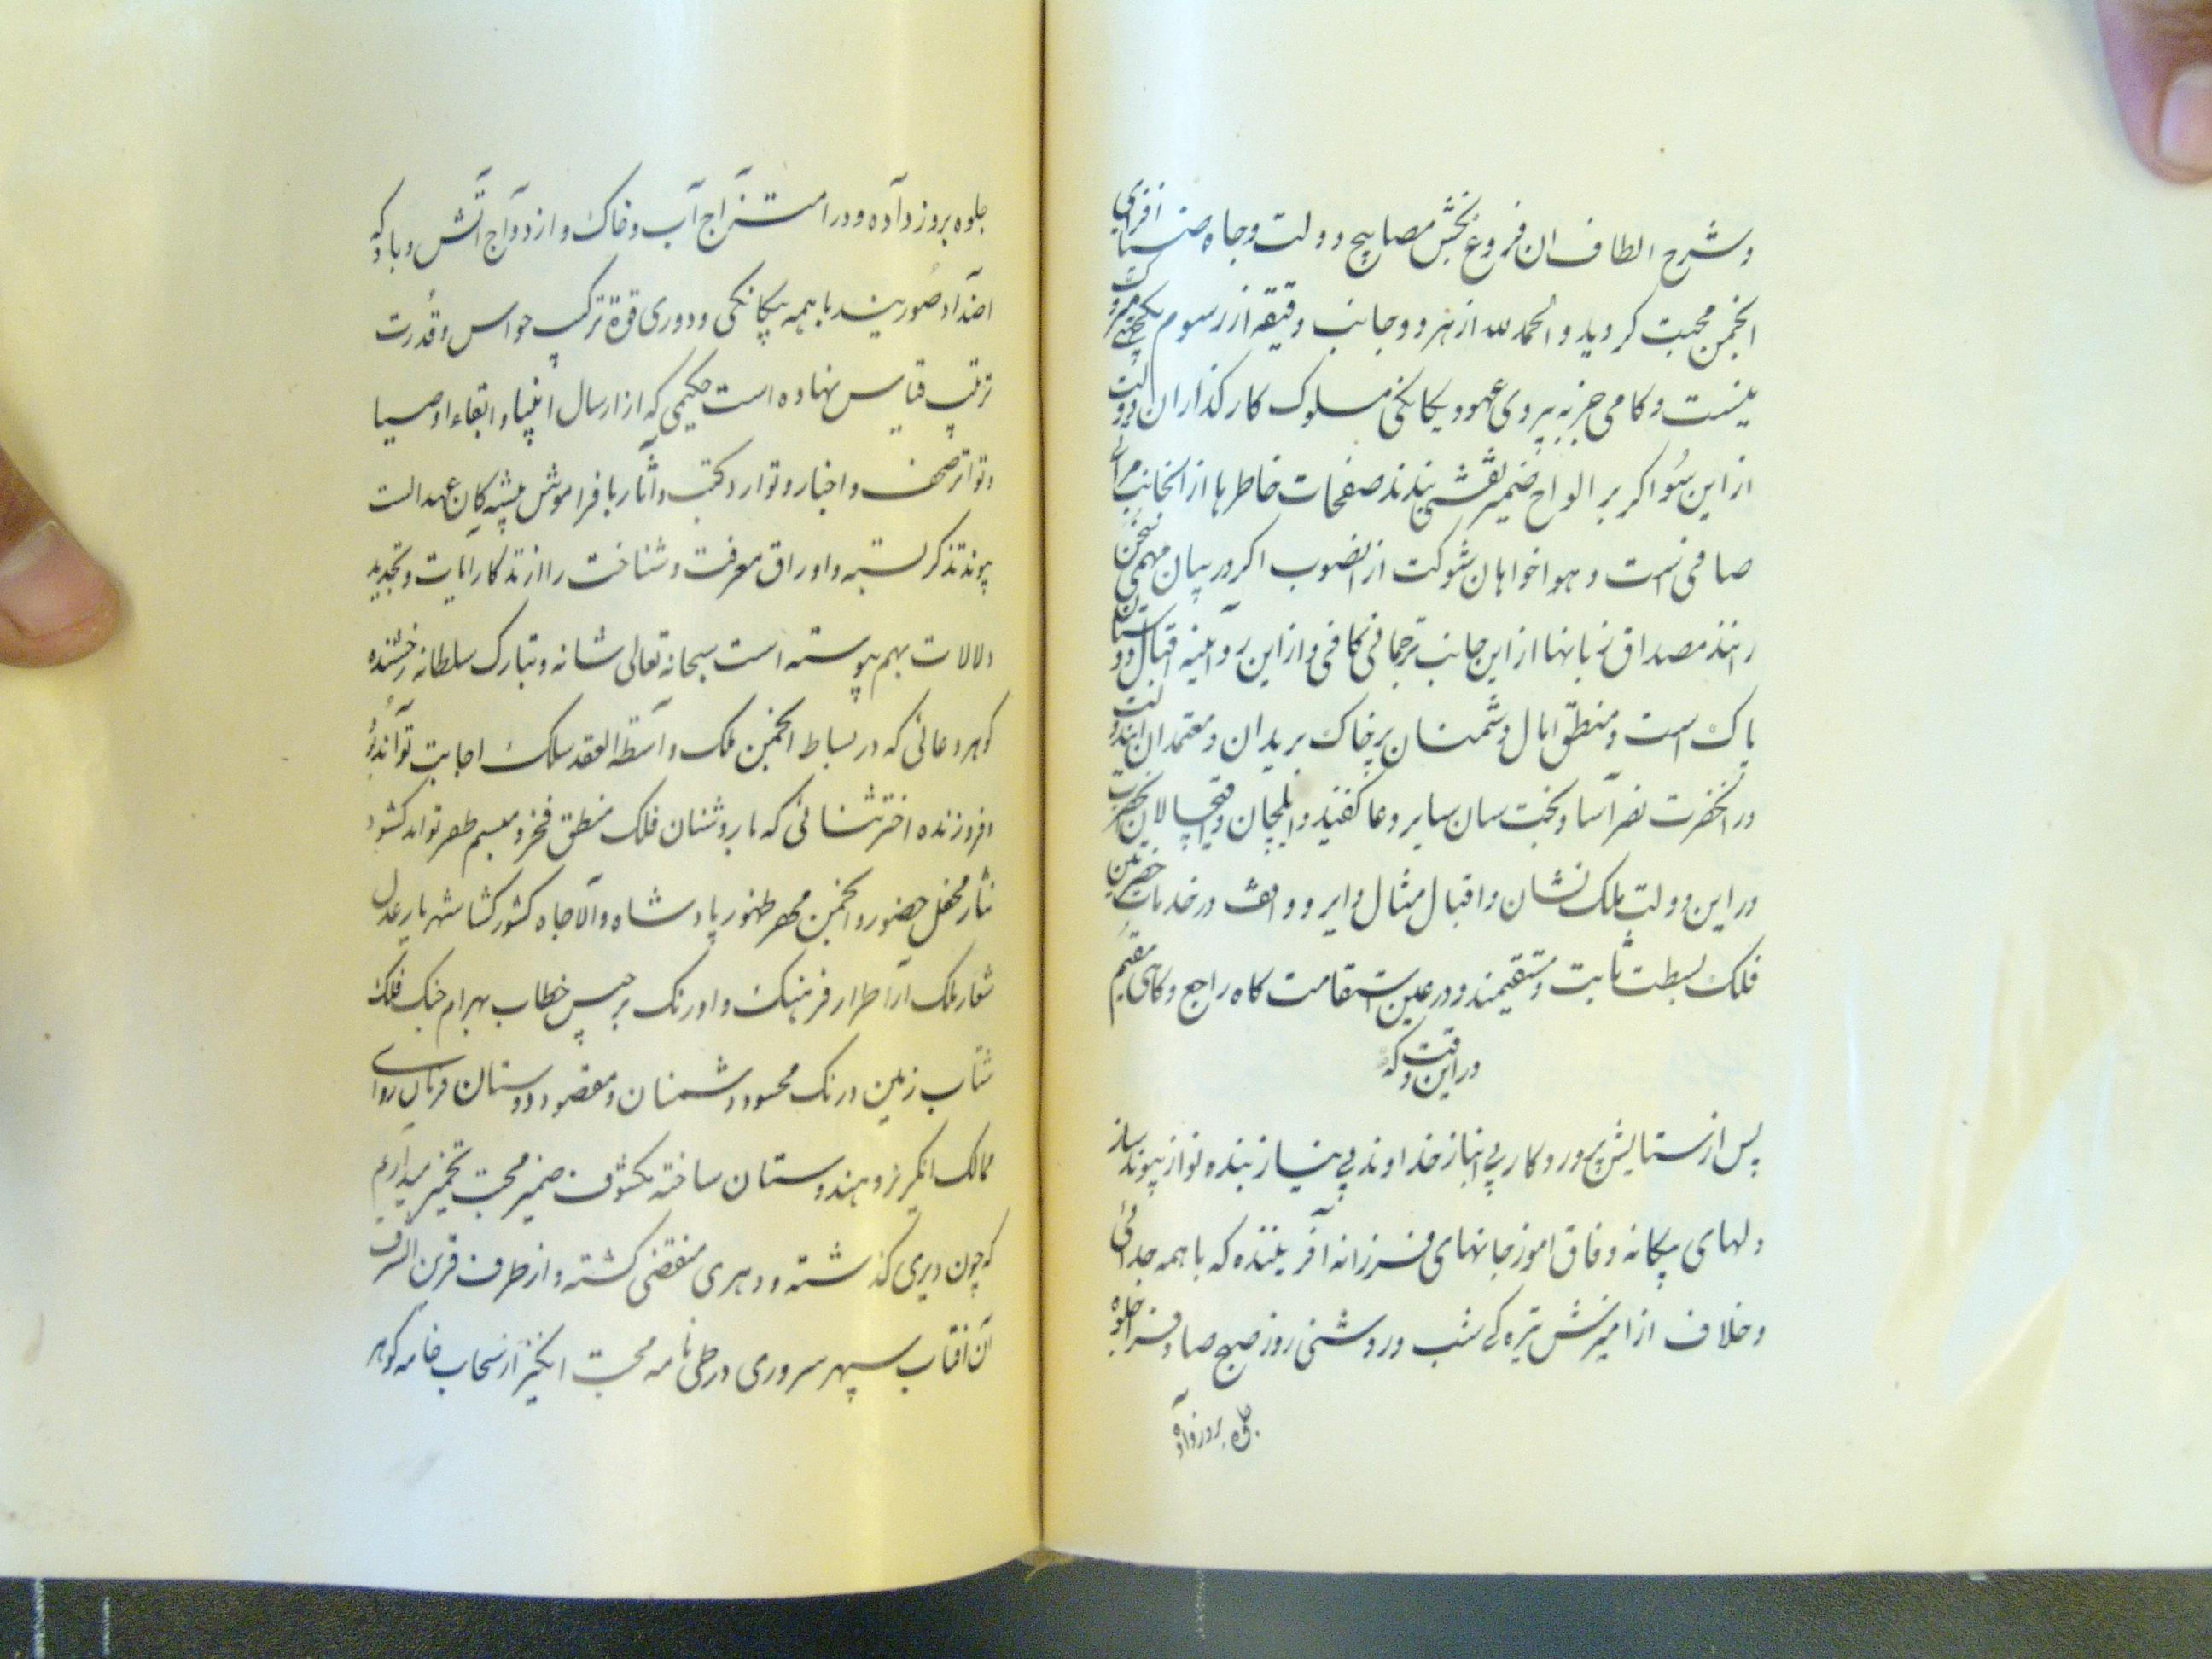 و شرح الطاف ان فروغ بخش مصابیح دولت و جاه ضیا افزای
انجمن محبت کردید و الحمد لله از هر دو جانب دقیقه از رسوم یکجهتی متروک
نیست و کامی جز به پیروی عهود یکانکی مسلوک کارکذاران دولت
از این سو اکر بر الواح ضمیر نقشی بندند صفحات خاطرها از انجانب مرآت
صافی است و هواخواهان شوکت از انصوب اکر در بیان مهمی سخن
رانند مصداق زبانها از این جانب ترجمانی کافی و از این رو آینه اقبال دوستان
پاک است و منطق امال دشمنان پر خاک بریدان و معتمدان ایندولت
در انحضرت نصر آسا و بخت سان سایر و عاکفند و ایلچیان و قپچیالان انحضرت
در این دولت ملک نشان و اقبال مثال دایر و واقف در خدمات حضرتین
فلک بسطت ثابت و مستقیمند و در عین استقامت کاه راجع و کاهی مقیم
در این وقت که
پس از ستایش پروردکار بی انباز خداوند بی نیاز بنده نواز پیوند ساز
دلهای بیکانه وفاق اموز جانهای فرزانه آفریننده که با همه جدائی
و خلاف از امیزش تیره کی شب و روشنی روز صبح صادق را جلوه
جلوه بروز داده
جلوه بروز داده و در امتزاج آب و خاک و ازدواج آتش و باد که
اضداد صورینند با همه بیکانکی و دوری قوة ترکیب حواس و قدرت
ترتیب قیاس نهاده است حکیمی که از ارسال انبیا و ابقاء اوصیا
و تواتر صحف و اخبار و توارد کتب و آثار با فراموش پیشه کان عهد الست
پیوند تذکر بسته و اوراق معرفت و شناخت را از تذکار آیات و تجدید
دلالات بهم پیوسته است سبحانه تعالی شانه و تبارک سلطانه رخشنده
کوهر دعائی که در بساط انجمن ملک واسطة العقد سلک اجابت تواند بود
و فروزنده اختر ثنائی که با روشنان فلک منطق فخر و مبسم ظفر تواند کشود
نثار محفل حضور و انجمن مهر ظهور پادشاه والا جاه کشور کشا شهریار عدل
شعار ملک آرا طراز فرهنک و اورنک برجیس خطاب بهرام جنک فلک
شتاب زمین درنک محسود دشمنان و مقصود دوستان فرمان روای
ممالک انکریز و هندوستان ساخته مکشوف ضمیر محبت تخمیر میداریم
که چون دیری کذشته و دهری منقضی کشته و از طرف قرین الشرف
آن افتاب سپهر سروری در طی نامه محبت انکیز از سحاب خامه کوهر